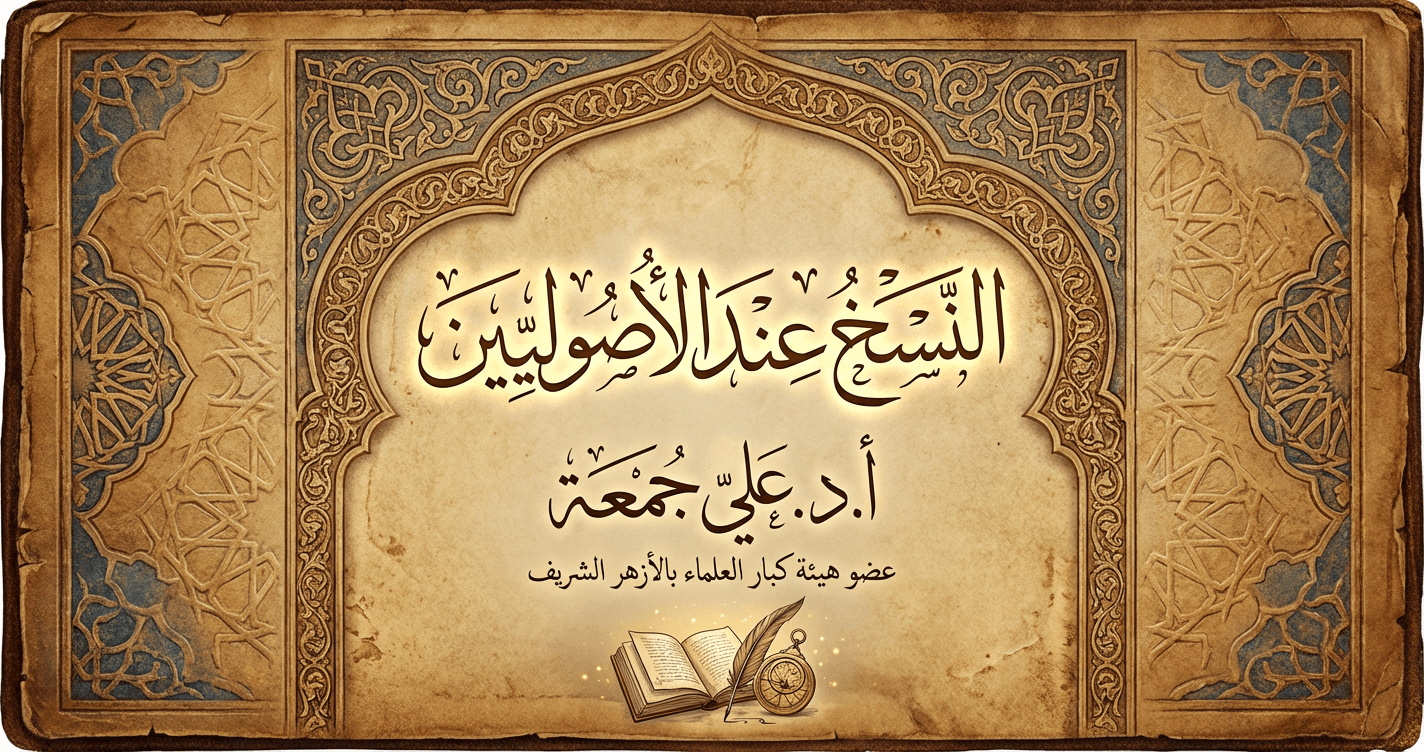 النَّسْخُ عِنْدَ الْأُصُولِيِّينَ
أ.د. عَلِيّ جُمْعَة
عضو هيئة كبار العلماء بالأزهر الشريف